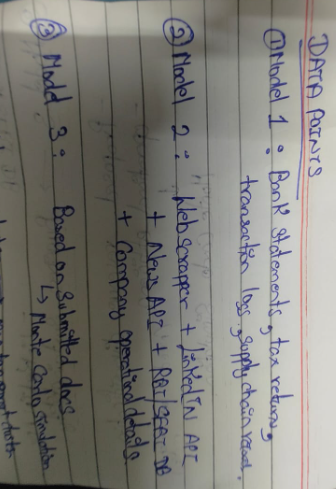 DATA POINTS
① Model 1 : Bank statements, tax returns,
transaction logs, supply chain
② Model 2 : Web scrapper + LinkedIN API
+ News API +
+ Company operational details
③ Model 3 : Based on submitted docs
↳ Monte Carlo simulation